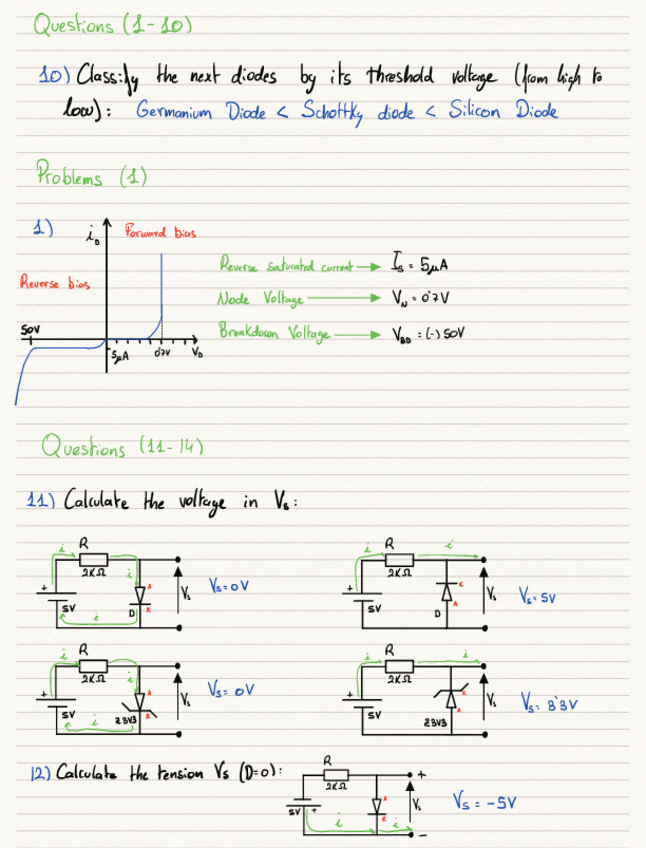 Questions (1-10)
10) Classify the next diodes by its threshold voltage (from high to
low): Germanium Diode < Schottky diode < Silicon Diode
Problems (1)
1) i₀ Forward bias
Reverse bias
Reverse saturated current → Iₛ = 5μA
Node Voltage → V_N = 0'7V
Breakdown Voltage → V_BD = (-) 50V
50V 5μA 0'7V V_D
Questions (11-14)
11) Calculate the voltage in Vₛ:
i R i 2KΩ + 5V i i D A K Vₛ Vₛ=0V
i R i 2KΩ + 5V D K A Vₛ Vₛ=5V
i R 2KΩ + 5V i i A K Z3V3 Vₛ Vₛ=0V
i R i 2KΩ + 5V Z3V3 K A Vₛ Vₛ= 3'3V
12) Calculate the tension Vₛ (D=0):
R 2KΩ 5V + i i A K + - Vₛ Vₛ = -5V